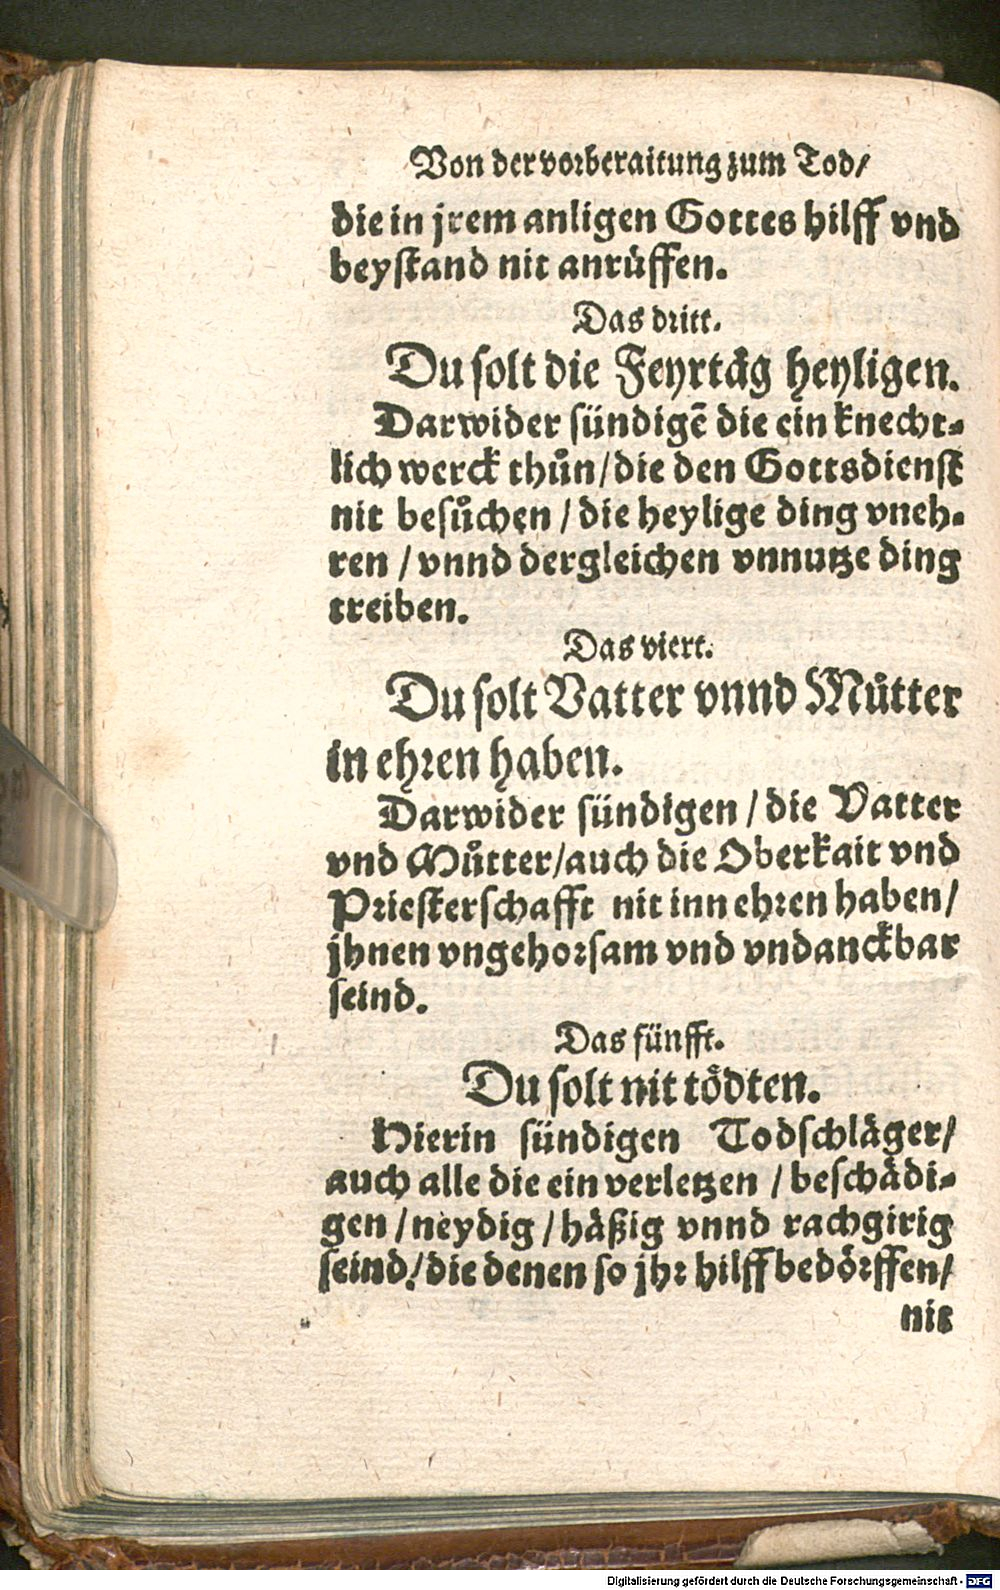 Von der vorberaitung zum Tod/
die in jrem anligen Gottes hilff vnd
beystand nit anrůffen.
Das dritt.
Du solt die Feyrtäg heyligen.
Darwider sündigē die ein knecht-
lich werck thůn/die den Gottsdienst
nit besůchen / die heylige ding vneh-
ren / vnnd dergleichen vnnutze ding
treiben.
Das viert.
Du solt Vatter vnnd Můtter
in ehren haben.
Darwider sündigen / die Vatter
vnd Můtter/auch die Oberkait vnd
Priesterschafft nit inn ehren haben/
jhnen vngehorsam vnd vndanckbar
seind.
Das fünfft.
Du solt nit tödten.
Hierin sündigen Todschläger/
auch alle die ein verletzen / beschädi-
gen / neydig / häßig vnnd rachgirig
seind/ die denen so jhr hilff bedörffen/
nit
Digitalisierung gefördert durch die Deutsche Forschungsgemeinschaft - DFG